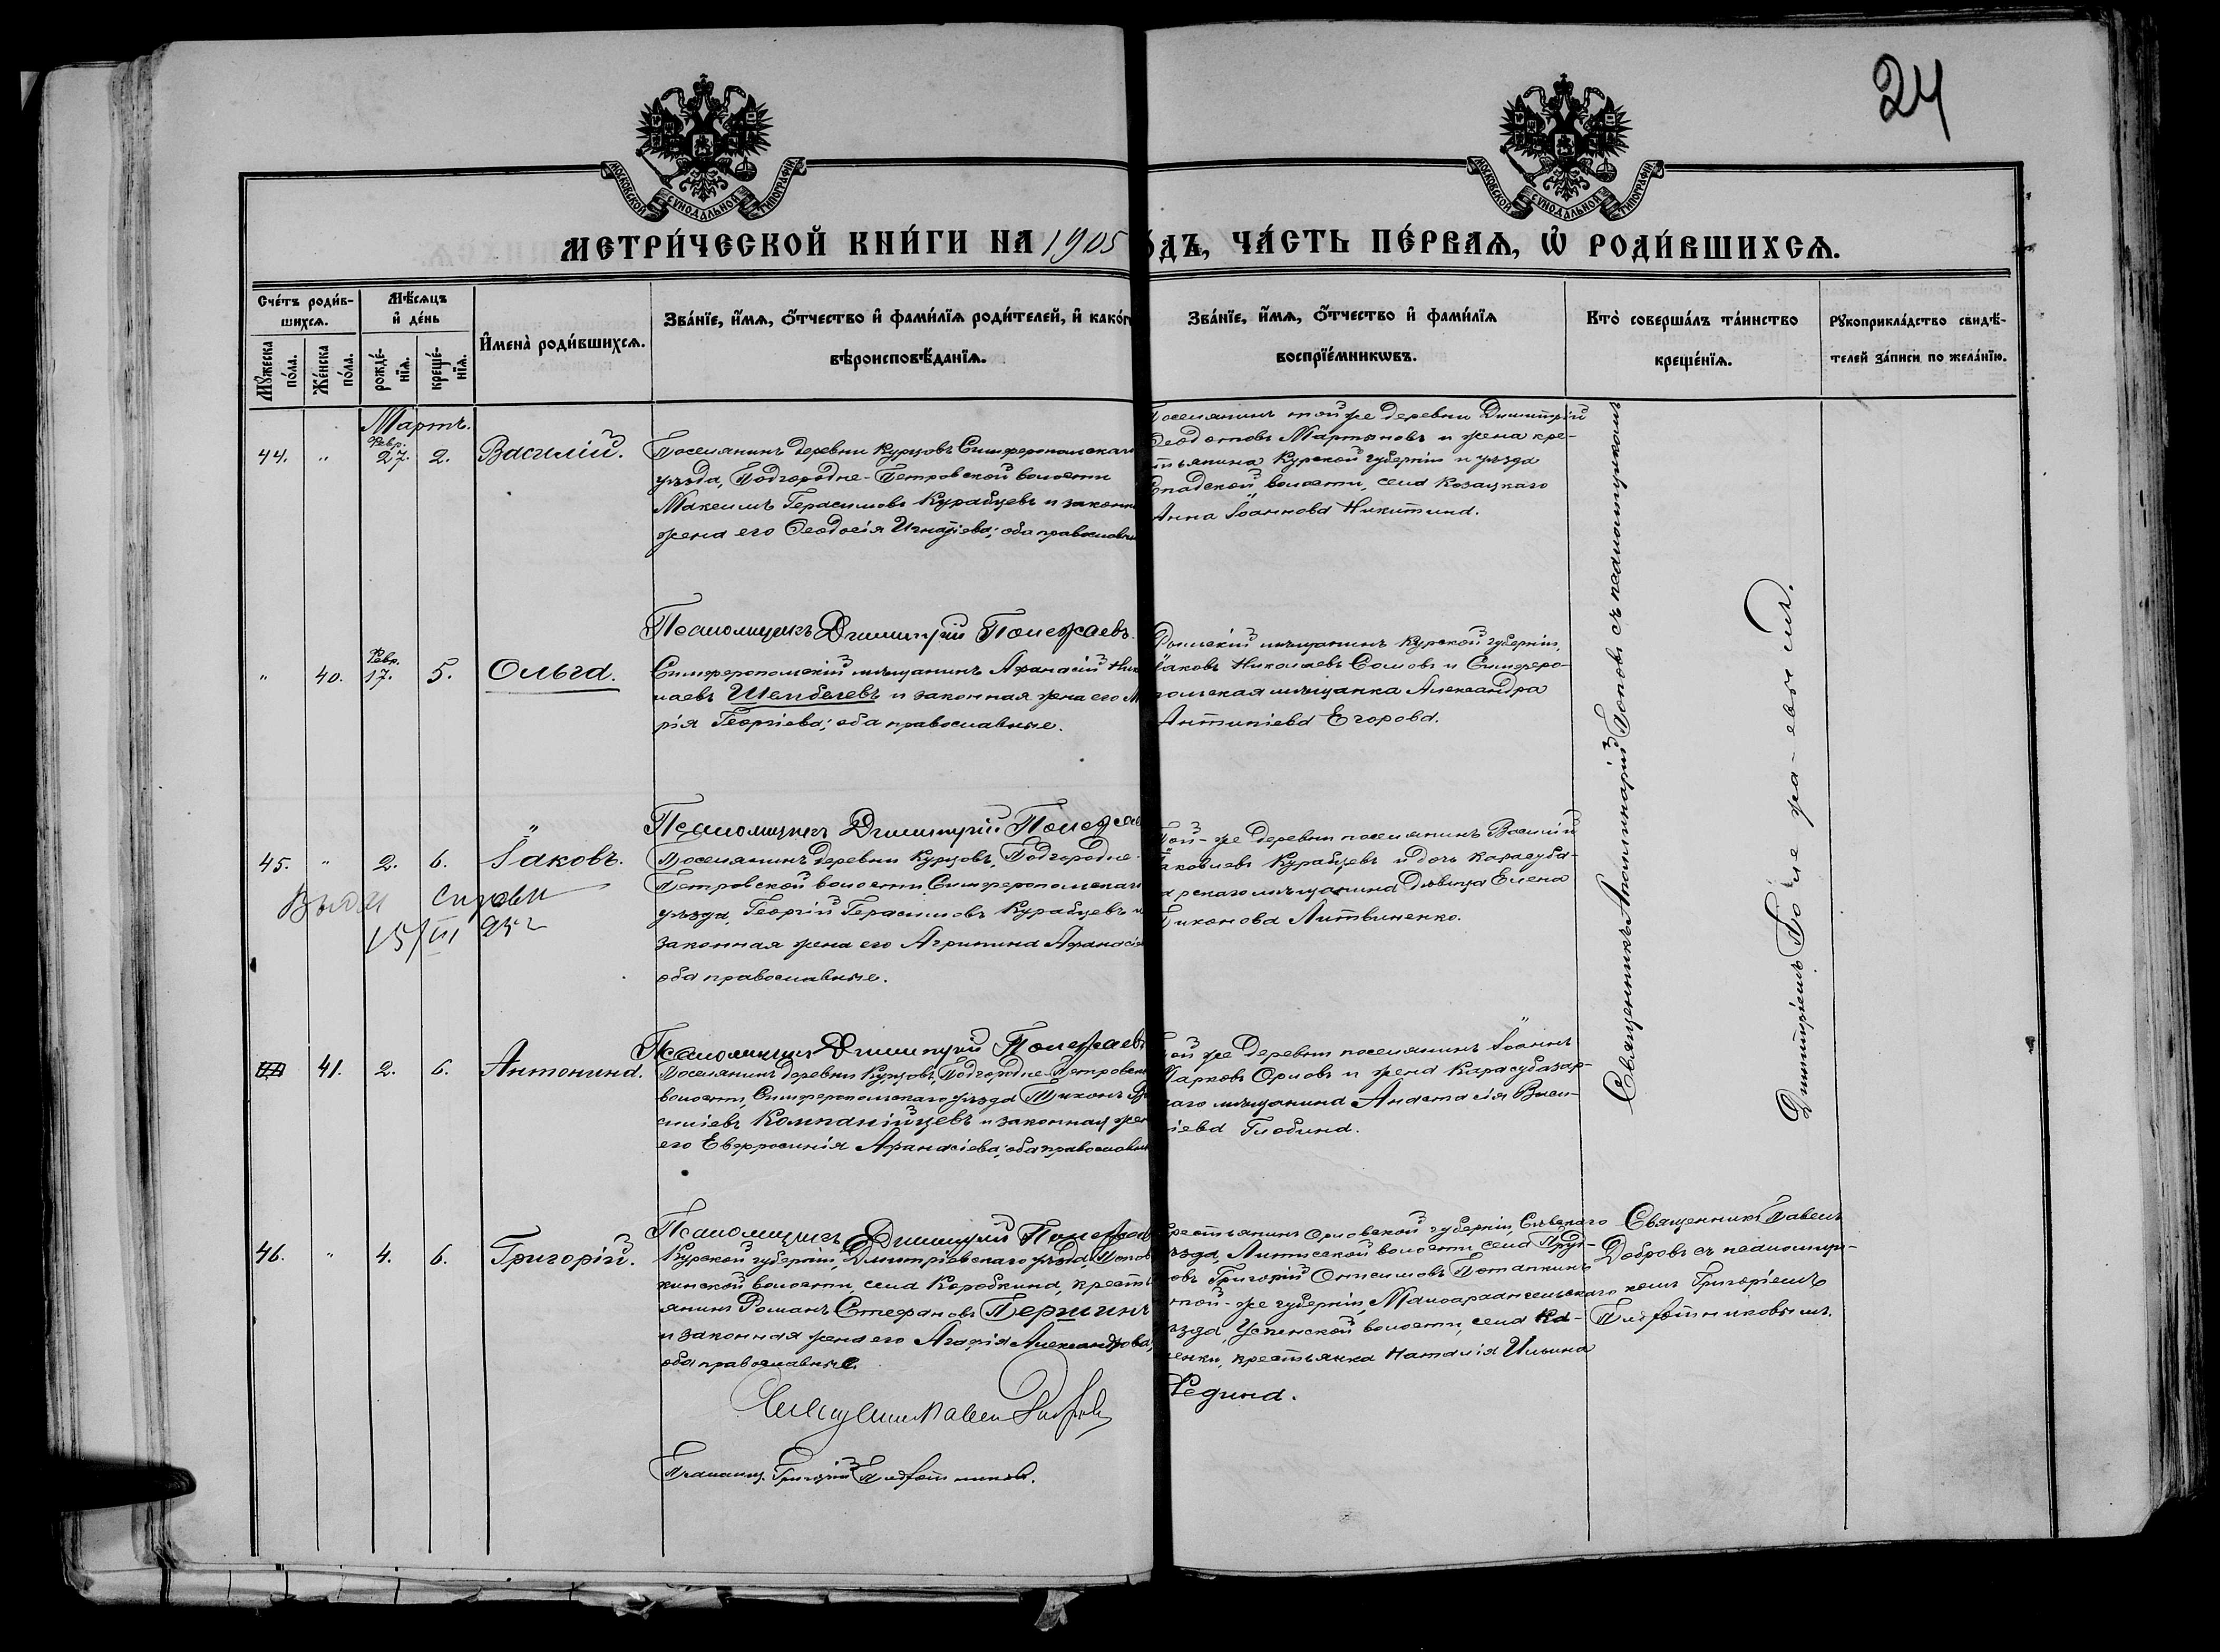 24
МОСКОВСКОЙ СѴНОДАЛЬНОЙ ТИПОГРАФІИ
МОСКОВСКОЙ СѴНОДАЛЬНОЙ ТИПОГРАФІИ
МЕТРИ́ЧЕСКОЙ КНИ́ГИ НА 1905
ОДЪ, ЧА́СТЬ ПЕ́РВАѦ, Ѽ РОДИ́ВШИХСѦ.
Сче́тъ роди́в-
шихсѧ.
Мꙋ́жеска по́ла.
Же́нска по́ла.
Мѣ́сѧцъ
и҆ де́нь
рожде́-
нїѧ.
креще́-
нїѧ.
И҆мена̀ роди́вшихсѧ.
Зва́нїе, и҆́мѧ, ѻ҆́тчество и҆ фами́лїѧ роди́телей, и҆ како́г
вѣроисповѣ́данїѧ.
Зва́нїе, и҆́мѧ, ѻ҆́тчество и҆ фами́лїѧ
воспрїе́мникѡвъ.
Кто̀ соверша́лъ та́инство
креще́нїѧ.
Рꙋкоприкла́дство свидѣ́-
телей за́писи по жела́нїю.
Мартъ.
44. " Февр. 27. 2. Василій.
Поселянинъ деревни Курцовъ Симферопольскаг
уѣзда, Подгородне-Петровской волости
Максимъ Герасимовъ Курабцевъ и законн
жена его Ѳеодосія Игнатіева; оба православн
Поселянинъ той же деревни Димитрій
Ѳеодотовъ Мартыновъ и жена кре-
стьянина Курской губерніи и уѣзда
волости, села Козацкаго
Анна Іоаннова Никитина.
Псаломщикъ Димитрій Полежаевъ.
" 40. Февр. 17. 5. Ольга.
Симферопольскій мѣщанинъ Аѳанасій Ник
лаевъ Шембелевъ и законная жена его М
рія Георгіева; оба православные.
мѣщанинъ Курской губерніи,
Іаковъ Николаевъ Сомовъ и Симферо-
польская мѣщанка Александра
Антипіева Егорова.
Псаломщикъ Димитрій Полежае
45. " 2. 6. Іаковъ.
Поселянинъ деревни Курцовъ, Подгородне-
Петровской волости, Симферопольскаг
уѣзда, Георгій Герасимовъ Курабцевъ и
законная жена его Агрипина Аѳанасіе
оба православные.
Той-же деревни поселянинъ Василій
Іаковлевъ Курабцевъ и дочь карасуба-
зарскаго мѣщанина дѣвица Елена
Тихонова Литвиненко.
Псаломщикъ Димитрій Полежаев
41. 2. 6. Антонина.
Поселянинъ деревни Курцовъ, Подгородне-Петровск
волости, Симферопольскаго уѣзда Тихонъ Ва
силіевъ Компанійцевъ и законная жен
его Евфросинія Аѳанасіева; оба православн
Той же деревни поселянинъ Іоаннъ
Марковъ Орловъ и жена Карасубазар-
каго мѣщанина Анастасія Васи-
ліева Глобина.
Псаломщикъ Димитрій Полежа
46. " 4. 6. Григорій.
Курской губерніи, Дмитріевскаго уѣзда,
кинской волости, села Коробкина, кресть
янинъ Романъ Стефановъ Першинъ
и законная жена его Агафія Александрова;
оба православные.
крестьянинъ Орловской губерніи, Сѣвскаго
уѣзда, волости, села Пруд-
овъ Григорій Онисимовъ Потапкинъ
той-же губерніи, Малоархангельскаго
уѣзда, Успенской волости, села Ка-
менки, крестьянка Наталія Ильина
Редина.
Священникъ Павелъ
Добровъ съ псаломщи-
комъ Григоріемъ
Плотниковымъ.
Псаломщ. Григорій Плотниковъ.
Священникъ Аполлинарій Поповъ съ псаломщикомъ
Димитріемъ Поле жа-евымъ.